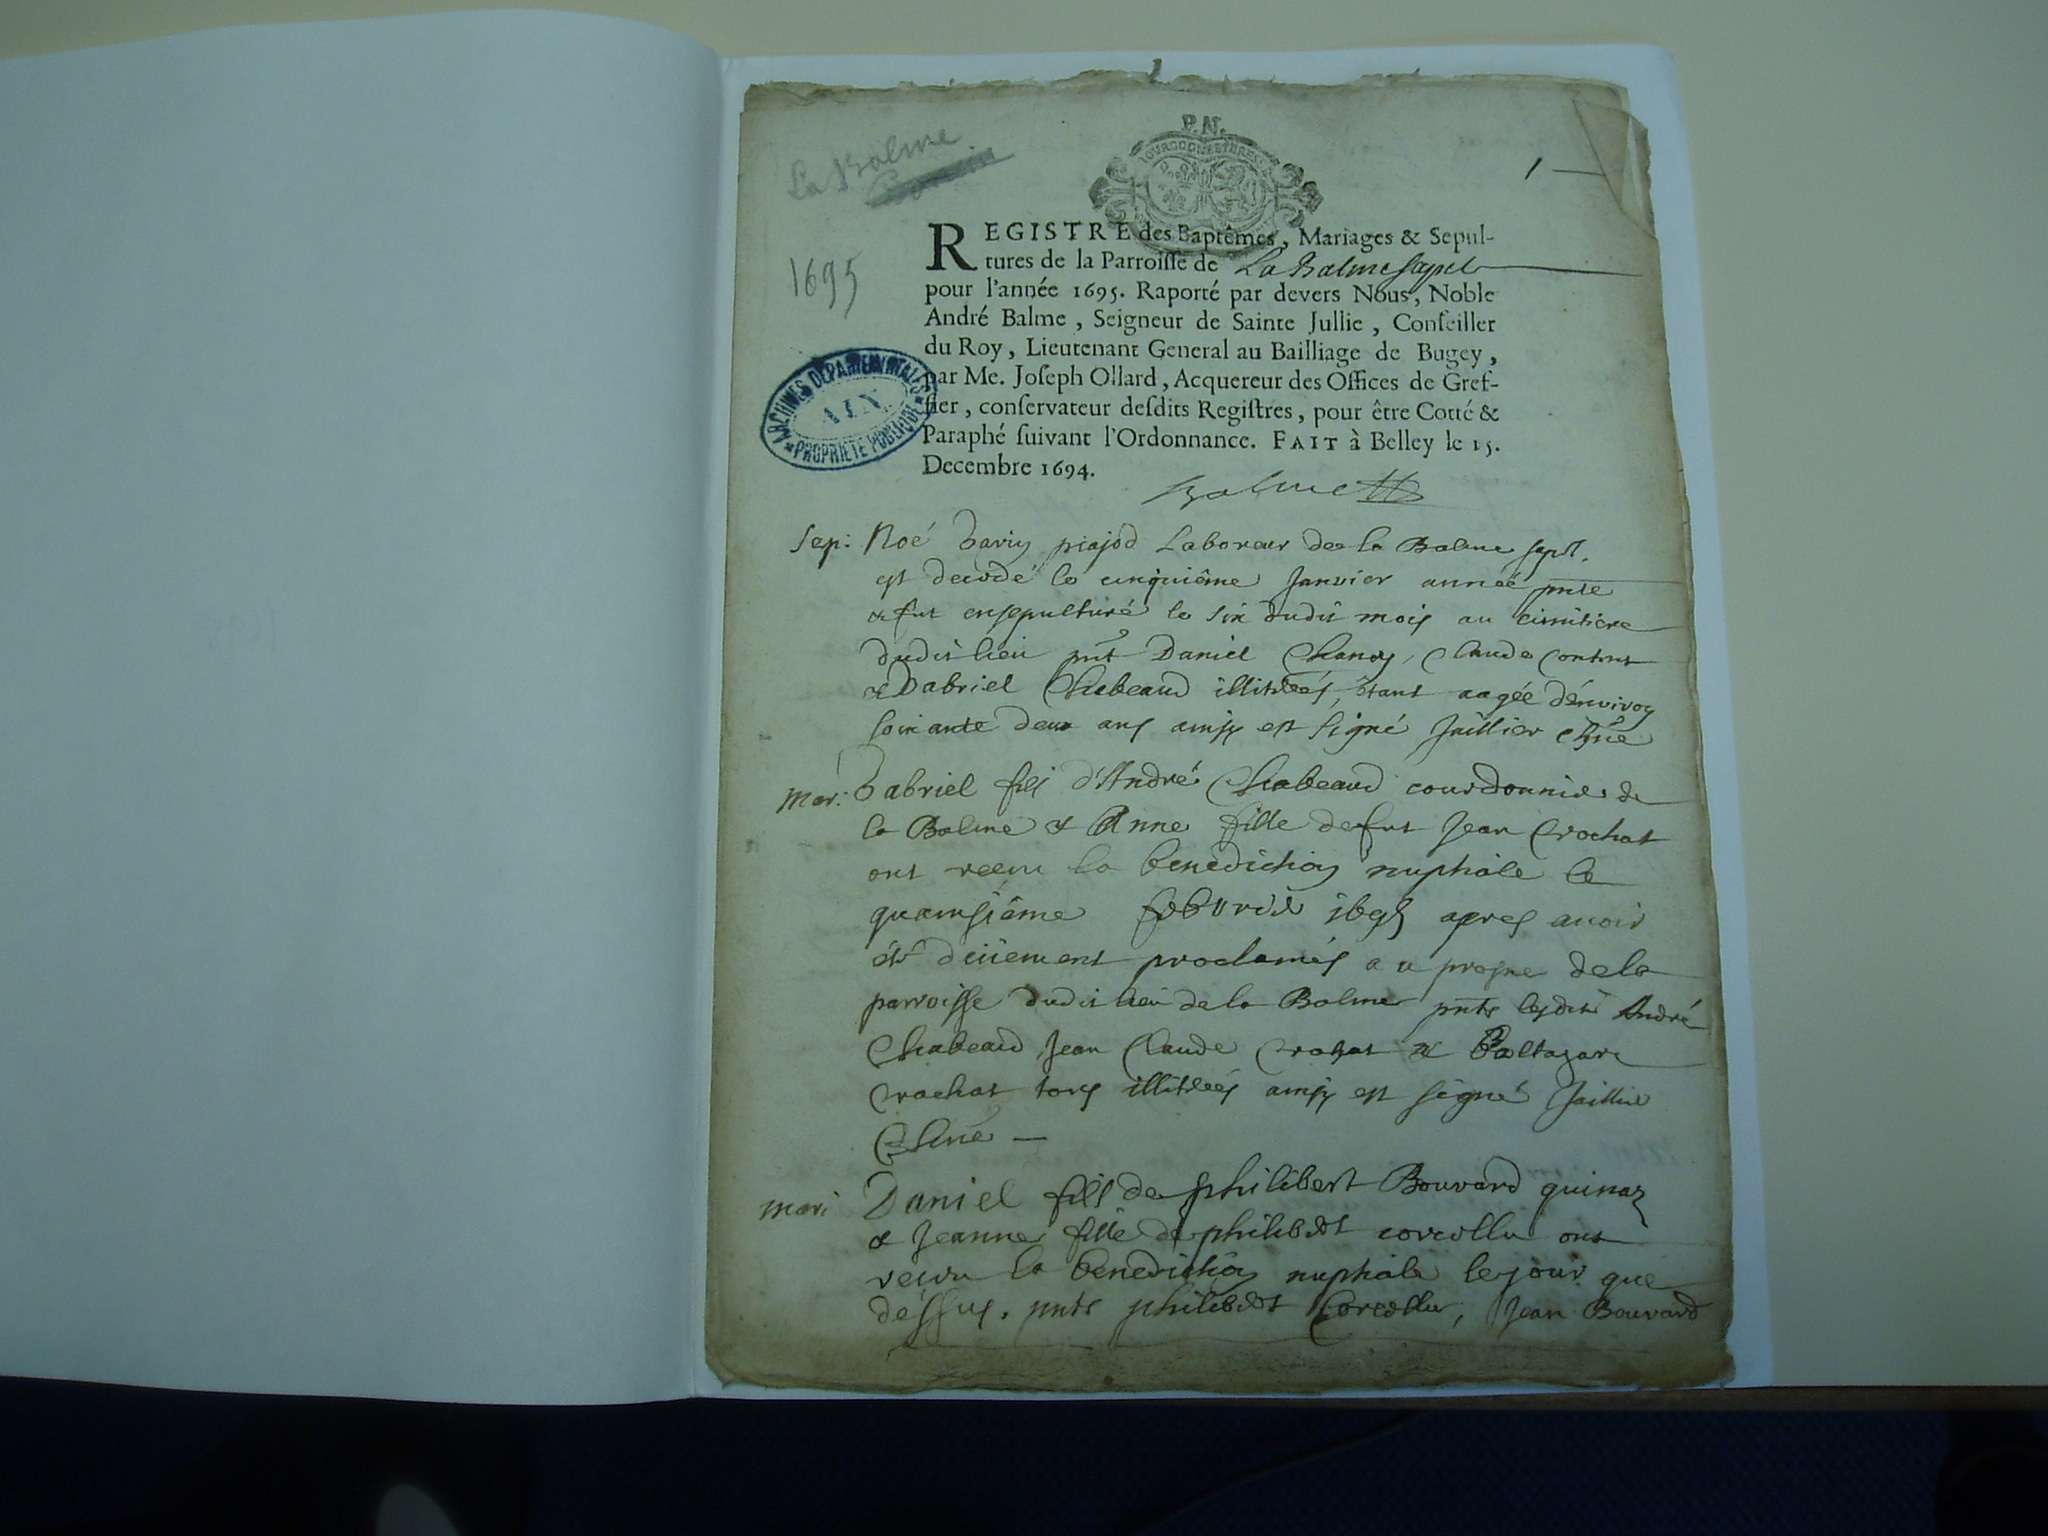 P. N.
La Balme
1
BOURGOGNE ET BRESSE
REGISTRE des Baptêmes, Mariages & Sepul-
tures de la Parroisse de La Balme sapel
1695
pour l'année 1695. Raporté par devers Nous, Noble
André Balme, Seigneur de Sainte Jullie, Conseiller
du Roy, Lieutenant General au Bailliage de Bugey,
par Me. Joseph Ollard, Acquereur des Offices de Gref-
fier, conservateur desdits Registres, pour être Cotté &
Paraphé suivant l'Ordonnance. FAIT à Belley le 15.
Decembre 1694.
ARCHIVES DEPARTEMENTALES
AIN
PROPRIETE PUBLIQUE
Balme
Sep: Noé piajod Laboreur de la Balme sapl.
est decedé le cinquiême Janvier année pnte
& fut ensepulturé le six dudit mois au cimitiere
dudit lieu pnt Daniel Claude
& Gabriel Chabeaud illitrés, êtant aagée d'environ
soixante deux ans ainsy est signé Jaillier
Mar: Gabriel fils d'André Chabeaud courdonnier de
la Balme & Anne fille de fut Jean Crochat
ont receu la benediction nuptiale le
quainsiême febvrier 1695 apres avoir
été düement proclamés au prosne de la
parroisse dudit lieu de la Balme pnts lesdits André
Chabeaud Jean Claude Crochat & Baltazard
Crochat tous illitrés ainsy est signé Jaillier
Mari Daniel fils de philibert Bouvard quinaz
& Jeanne fille de philibert corcellu ont
reçeu la benediction nuptiale le jour que
dessus. pnts philibert Corcellu, Jean Bouvard